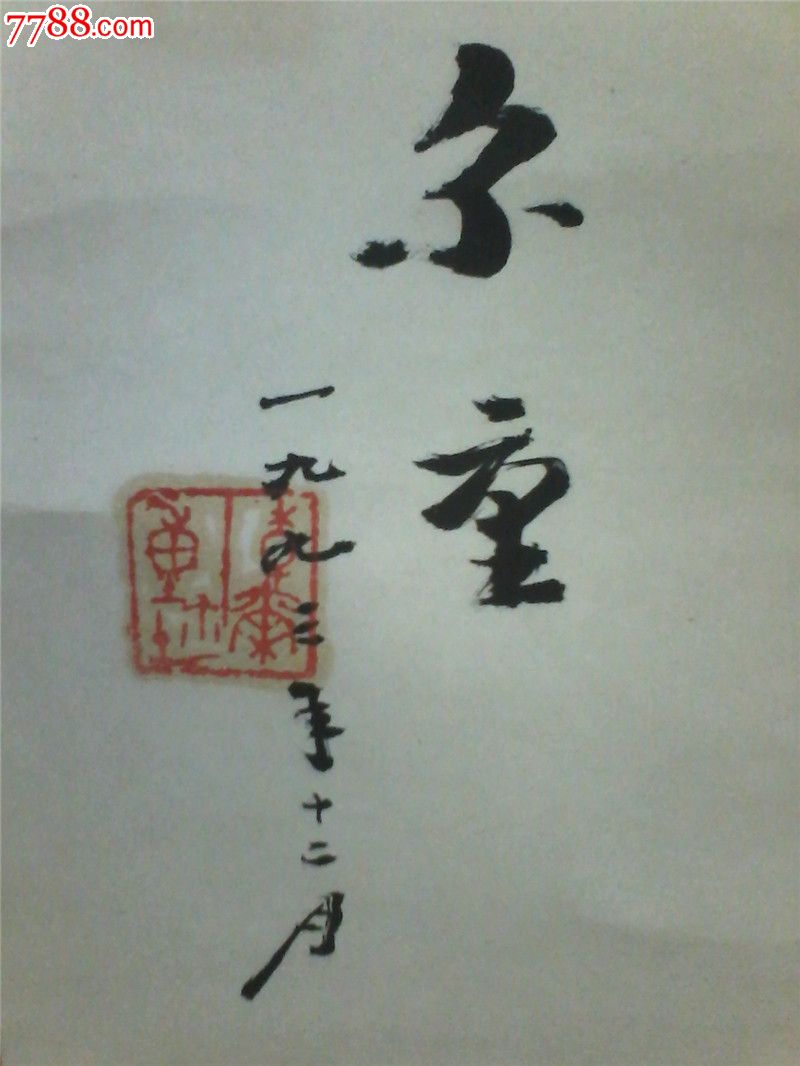 7788.com
尔重
一九九三年十二月